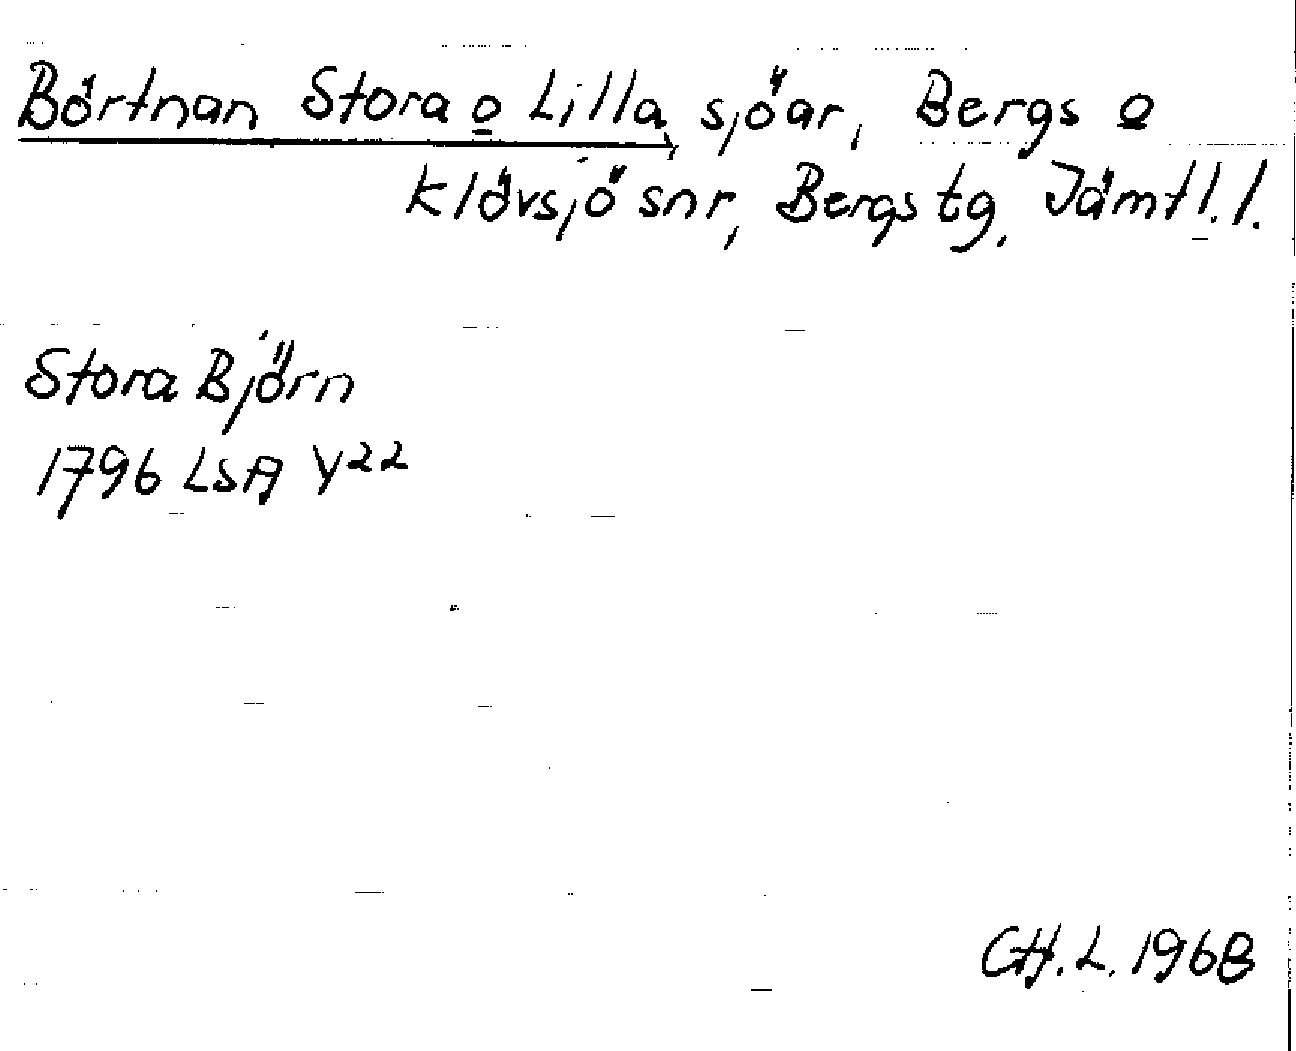 Börtnan Stora o Lilla, sjöar, Bergs o
Klövsjö snr, Bergs tg, Jämtl. l.
Stora Björn
1796 LSA Y22
CH. L. 1968